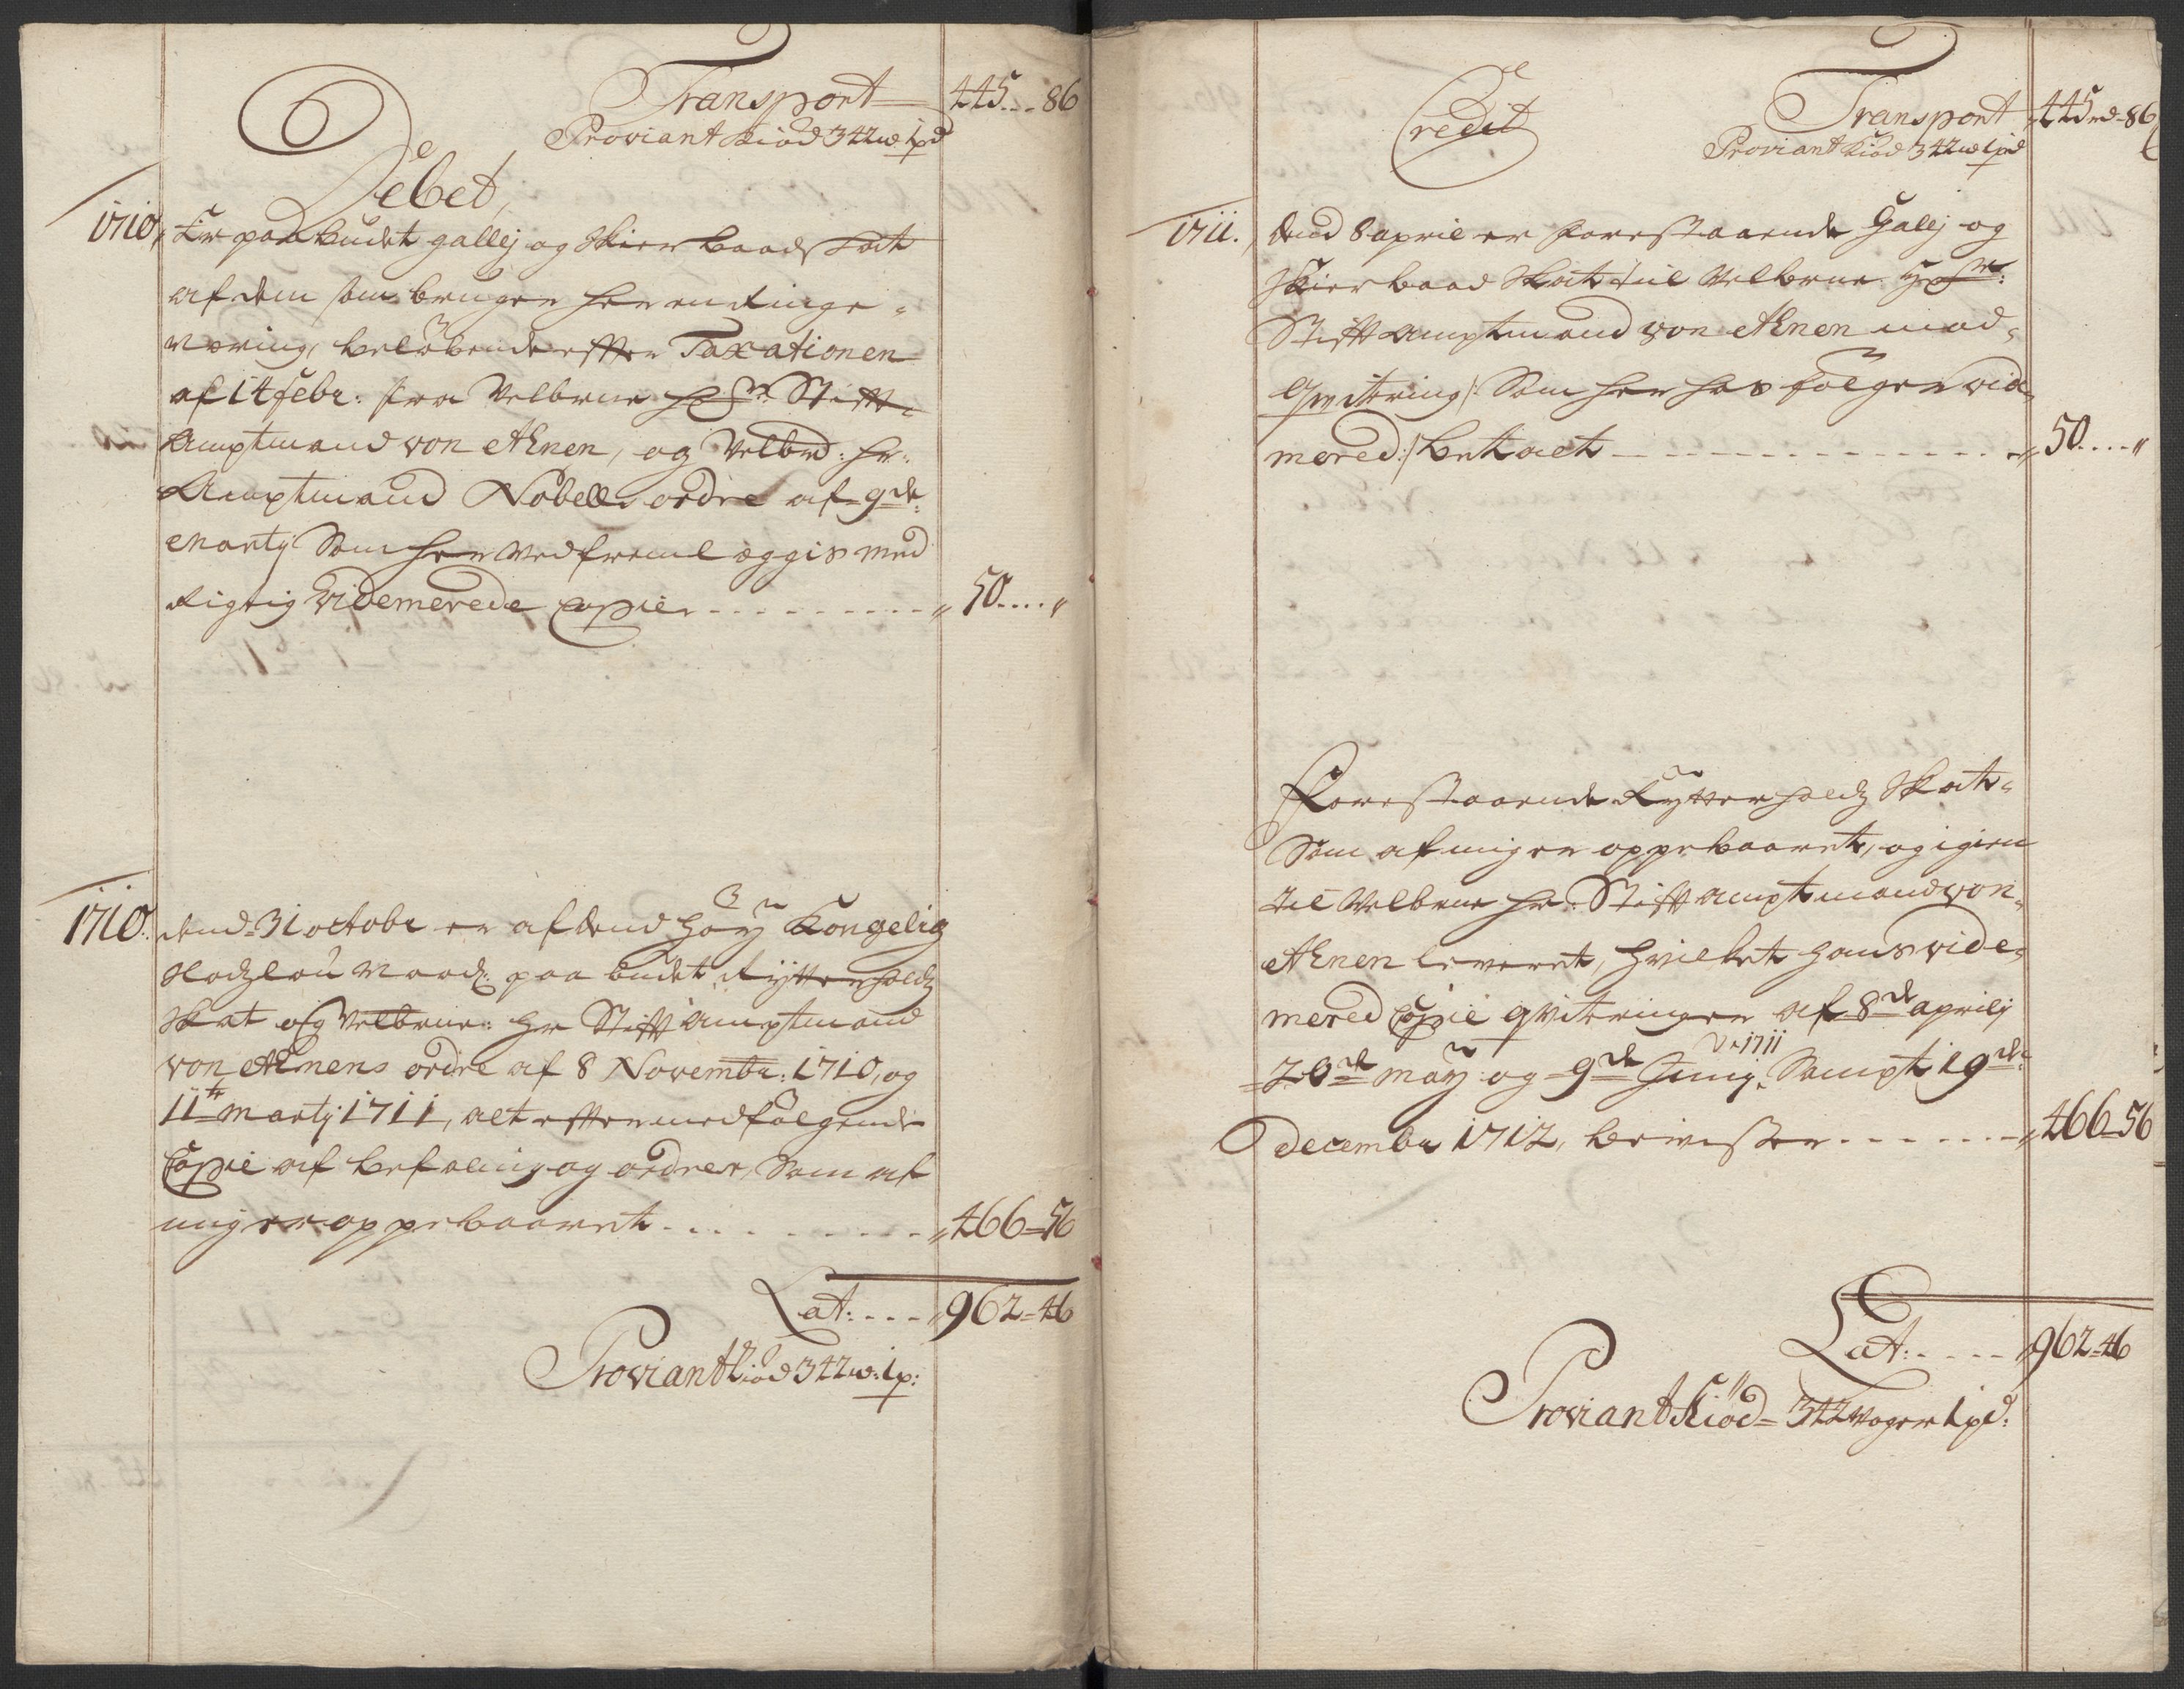 Transport 445 - - 86
Proviant Kiöd 342 w 1 pd
Debet,
1710, Er paabudet gallej og Skierbaads Skat
af dem som bruger her en Ringe
næring, beløbende effter Taxationen
af 14 Febr: fra Velbrne Hr Stifft
Amptmand von Ahnen, og Velbd: Hr:
Amptmand Nobels ordre af 9de
Marty Som her ved fremlæggis med
Rigtig Videmerede Copie - - - - - - - - - „ 50 . . . . „
1710. dend 31 octobr er af dend høy Kongelig
Slodzlou Naad: paabudet Rÿtterholdz
Skat og Velbrne: Hr Stifft Amptmand
von Ahnens ordre af 8 Novembr: 1710, og
11te Marty 1711, alt effter medfølgende
Copie af befaling og ordrer, Som af
mig er oppebaaret - . . . - - - - - „ 466 = 56
Lat: - - - „ 962 = 46
Proviant Kiöd 342 w: 1 p:
Credit
Transport „ 445 rd - 86
Proviant Kiöd 342 w 1 pd
1711. dend 8 april er Forestaaende Galej og
Skierbaad Skat til Velbrne Hr:
Stifft Amptmand von Ahnen mod
Qvittering /: Som her hos følger vid
mered :/ betaelt - - - - - - - - - - - - - „ 50 . . . . „
Forestaaende Rytterholdz Skat
Som af mig er oppebaaret, og igien
til Velbrne Hr: Stifft Amptmand von
Ahnen leveret, hvilket hans vide
mered Copie qvitteringer af 8de aprilj
Ao 1711
20de May og 9de Junj. Sampt 19de
decembr 1712, beviser - - - - - - „ 466 = 56
Lat: - - - - „ 962 = 46
Proviant Kiöd = 342 Woger 1 pd: